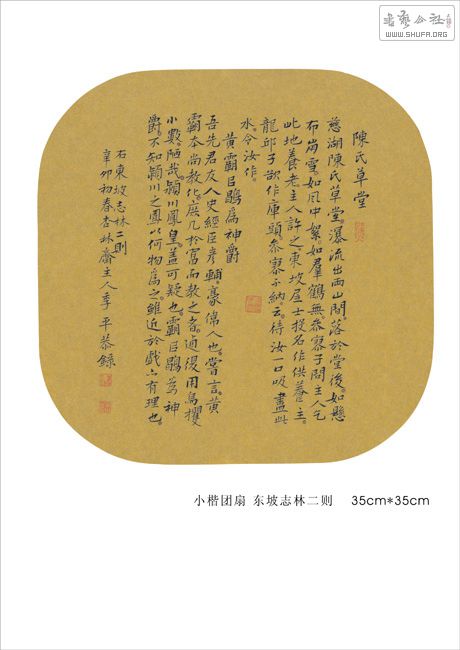 書藝公社
WWW.SHUFA.ORG
陳氏草堂
慈湖陳氏草堂。瀑流出兩山間。落於堂後。如懸
布崩雪。如風中絮。如羣鶴舞。參寥子問主人乞
此地養老。主人許之。東坡居士投名作供養主。
龍邱子欲作庫頭。參寥不納。云。待汝一口吸盡此
水令汝作。
黃霸以鶡為神爵
吾先君友人史經臣彥輔。豪偉人也。嘗言。黃
霸本尚教化。庶几於富而教之者。乃復用烏攫
小數。陋哉。潁川鳳皇蓋可疑也。霸以鶡為神
爵。不知潁川之鳳以何物為之。雖近於戲亦有理也。
右東坡志林二則
辛卯初春杏林齋主人季平恭錄
小楷团扇 东坡志林二则 35cm*35cm